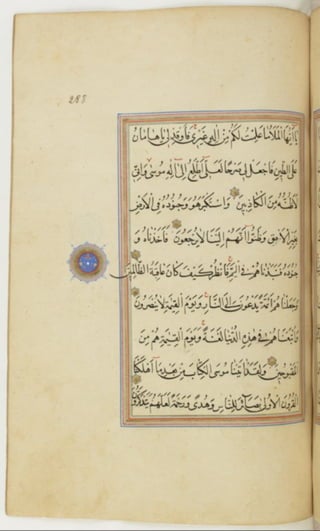 285
يَا أَيُّهَا الْمَلَأُ مَا عَلِمْتُ لَكُمْ مِنْ إِلَٰهٍ غَيْرِي فَأَوْقِدْ لِي يَا هَامَانُ
عَلَى الطِّينِ فَاجْعَلْ لِي صَرْحًا لَعَلِّي أَطَّلِعُ إِلَىٰ إِلَٰهِ مُوسَىٰ وَإِنِّي
لَأَظُنُّهُ مِنَ الْكَاذِبِينَ وَاسْتَكْبَرَ هُوَ وَجُنُودُهُ فِي الْأَرْضِ
بِغَيْرِ الْحَقِّ وَظَنُّوا أَنَّهُمْ إِلَيْنَا لَا يُرْجَعُونَ فَأَخَذْنَاهُ وَ
جُنُودَهُ فَنَبَذْنَاهُمْ فِي الْيَمِّ فَانْظُرْ كَيْفَ كَانَ عَاقِبَةُ الظَّالِمِينَ
وَجَعَلْنَاهُمْ أَئِمَّةً يَدْعُونَ إِلَى النَّارِ وَيَوْمَ الْقِيٰمَةِ لَا يُنْصَرُونَ
وَأَتْبَعْنَاهُمْ فِي هَٰذِهِ الدُّنْيَا لَعْنَةً وَيَوْمَ الْقِيٰمَةِ هُمْ مِنَ
الْمَقْبُوحِينَ وَلَقَدْ آتَيْنَا مُوسَى الْكِتَابَ مِنْ بَعْدِ مَا أَهْلَكْنَا
الْقُرُونَ الْأُولَىٰ بَصَائِرَ لِلنَّاسِ وَهُدًى وَرَحْمَةً لَعَلَّهُمْ يَتَذَكَّرُونَ